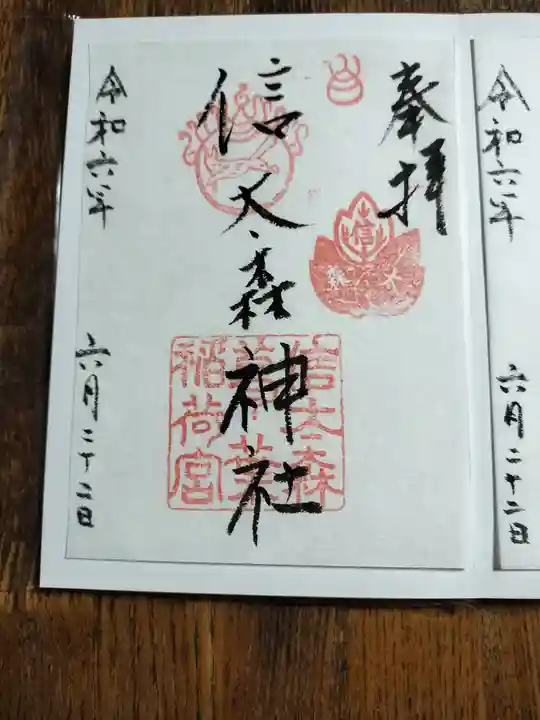 令和六年
六月二十二日
奉拝
信太森神社
信
信太森
葛葉
稲荷宮
令和六年
六月二十二日